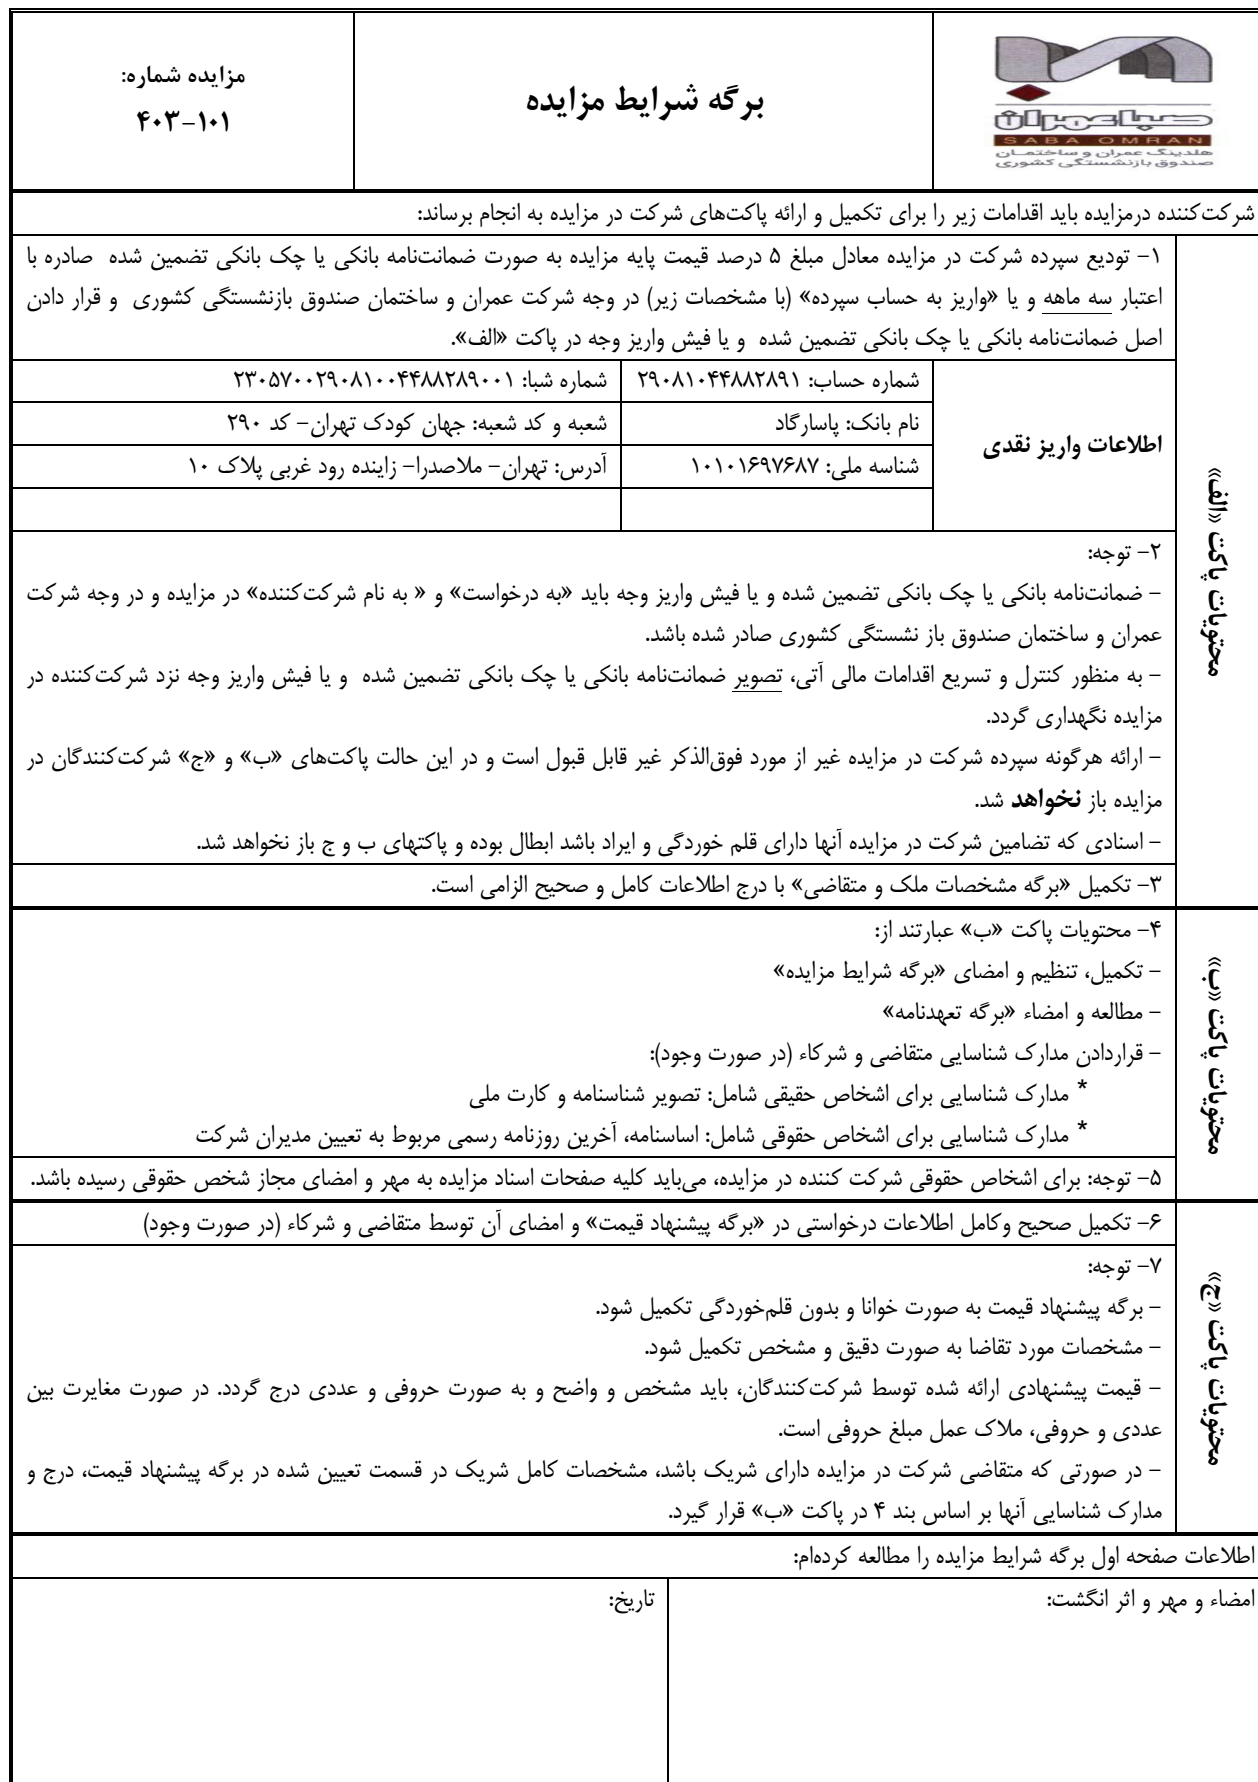 صبا عمران
SABA OMRAN
هلدینگ عمران و ساختمان
صندوق بازنشستگی کشوری
برگه شرایط مزایده
مزایده شماره:
۴۰۳-۱۰۱
شرکت‌کننده درمزایده باید اقدامات زیر را برای تکمیل و ارائه پاکت‌های شرکت در مزایده به انجام برساند:
محتویات پاکت «الف»
۱- تودیع سپرده شرکت در مزایده معادل مبلغ ۵ درصد قیمت پایه مزایده به صورت ضمانت‌نامه بانکی یا چک بانکی تضمین شده صادره با
اعتبار سه ماهه و یا «واریز به حساب سپرده» (با مشخصات زیر) در وجه شرکت عمران و ساختمان صندوق بازنشستگی کشوری و قرار دادن
اصل ضمانت‌نامه بانکی یا چک بانکی تضمین شده و یا فیش واریز وجه در پاکت «الف».
اطلاعات واریز نقدی
شماره حساب: ۲۹۰۸۱۰۴۴۸۸۲۸۹۱
شماره شبا: ۲۳۰۵۷۰۰۲۹۰۸۱۰۰۴۴۸۸۲۸۹۰۰۱
نام بانک: پاسارگاد
شعبه و کد شعبه: جهان کودک تهران- کد ۲۹۰
شناسه ملی: ۱۰۱۰۱۶۹۷۶۸۷
آدرس: تهران- ملاصدرا- زاینده رود غربی پلاک ۱۰
۲- توجه:
- ضمانت‌نامه بانکی یا چک بانکی تضمین شده و یا فیش واریز وجه باید «به درخواست» و « به نام شرکت‌کننده» در مزایده و در وجه شرکت
عمران و ساختمان صندوق باز نشستگی کشوری صادر شده باشد.
- به منظور کنترل و تسریع اقدامات مالی آتی، تصویر ضمانت‌نامه بانکی یا چک بانکی تضمین شده و یا فیش واریز وجه نزد شرکت‌کننده در
مزایده نگهداری گردد.
- ارائه هرگونه سپرده شرکت در مزایده غیر از مورد فوق‌الذکر غیر قابل قبول است و در این حالت پاکت‌های «ب» و «ج» شرکت‌کنندگان در
مزایده باز نخواهد شد.
- اسنادی که تضامین شرکت در مزایده آنها دارای قلم خوردگی و ایراد باشد ابطال بوده و پاکتهای ب و ج باز نخواهد شد.
۳- تکمیل «برگه مشخصات ملک و متقاضی» با درج اطلاعات کامل و صحیح الزامی است.
محتویات پاکت «ب»
۴- محتویات پاکت «ب» عبارتند از:
- تکمیل، تنظیم و امضای «برگه شرایط مزایده»
- مطالعه و امضاء «برگه تعهدنامه»
- قراردادن مدارک شناسایی متقاضی و شرکاء (در صورت وجود):
* مدارک شناسایی برای اشخاص حقیقی شامل: تصویر شناسنامه و کارت ملی
* مدارک شناسایی برای اشخاص حقوقی شامل: اساسنامه، آخرین روزنامه رسمی مربوط به تعیین مدیران شرکت
۵- توجه: برای اشخاص حقوقی شرکت کننده در مزایده، می‌باید کلیه صفحات اسناد مزایده به مهر و امضای مجاز شخص حقوقی رسیده باشد.
محتویات پاکت «ج»
۶- تکمیل صحیح وکامل اطلاعات درخواستی در «برگه پیشنهاد قیمت» و امضای آن توسط متقاضی و شرکاء (در صورت وجود)
۷- توجه:
- برگه پیشنهاد قیمت به صورت خوانا و بدون قلم‌خوردگی تکمیل شود.
- مشخصات مورد تقاضا به صورت دقیق و مشخص تکمیل شود.
- قیمت پیشنهادی ارائه شده توسط شرکت‌کنندگان، باید مشخص و واضح و به صورت حروفی و عددی درج گردد. در صورت مغایرت بین
عددی و حروفی، ملاک عمل مبلغ حروفی است.
- در صورتی که متقاضی شرکت در مزایده دارای شریک باشد، مشخصات کامل شریک در قسمت تعیین شده در برگه پیشنهاد قیمت، درج و
مدارک شناسایی آنها بر اساس بند ۴ در پاکت «ب» قرار گیرد.
اطلاعات صفحه اول برگه شرایط مزایده را مطالعه کرده‌ام:
امضاء و مهر و اثر انگشت:
تاریخ: